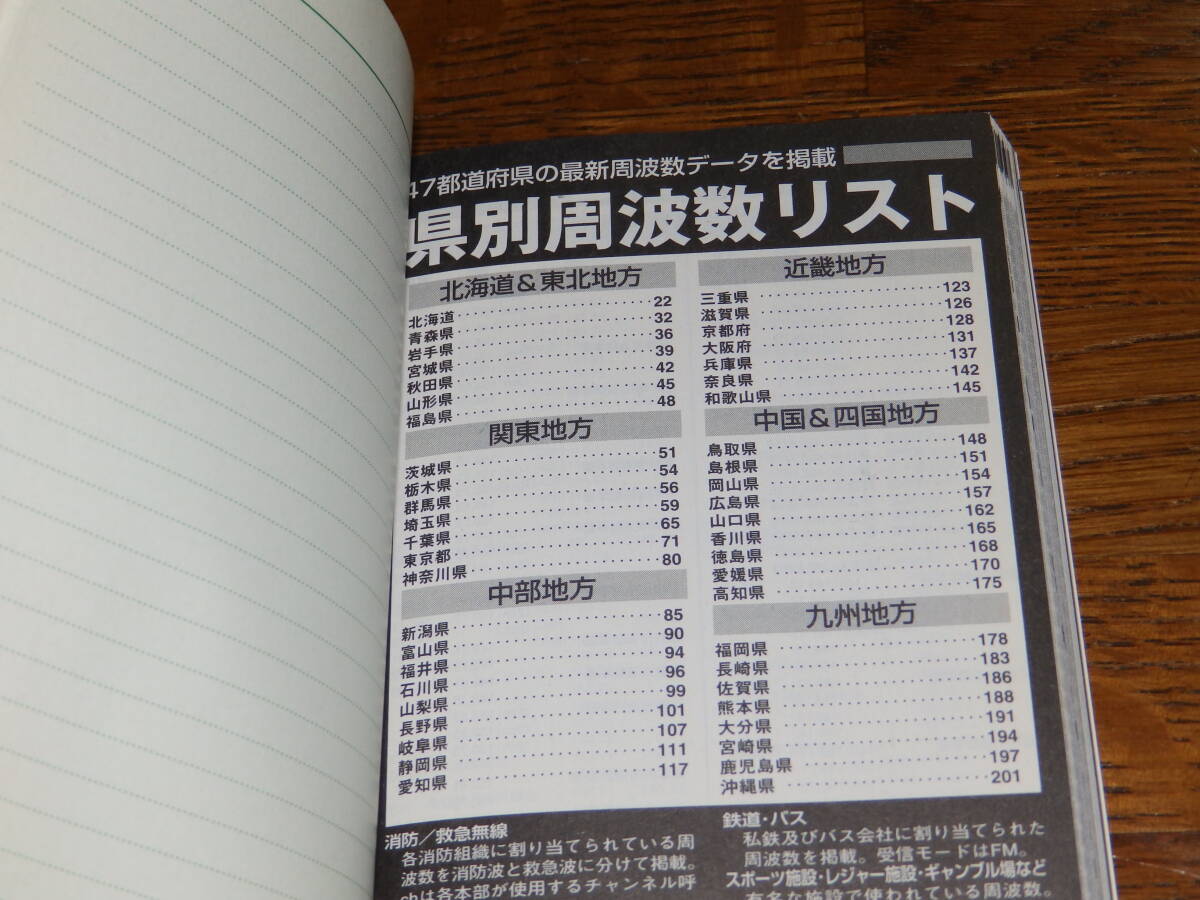 47都道府県の最新周波数データを掲載
県別周波数リスト
北海道&東北地方
北海道 22
青森県 32
岩手県 36
宮城県 39
秋田県 42
山形県 45
福島県 48
関東地方
茨城県 51
栃木県 54
群馬県 56
埼玉県 59
千葉県 65
東京都 71
神奈川県 80
中部地方
新潟県 85
富山県 90
福井県 94
石川県 96
山梨県 99
長野県 101
岐阜県 107
静岡県 111
愛知県 117
近畿地方
三重県 123
滋賀県 126
京都府 128
大阪府 131
兵庫県 137
奈良県 142
和歌山県 145
中国&四国地方
鳥取県 148
島根県 151
岡山県 154
広島県 157
山口県 162
香川県 165
徳島県 168
愛媛県 170
高知県 175
九州地方
福岡県 178
長崎県 183
佐賀県 186
熊本県 188
大分県 191
宮崎県 194
鹿児島県 197
沖縄県 201
消防/救急無線
各消防組織に割り当てられている周
波数を消防波と救急波に分けて掲載。
chは各本部が使用するチャンネル呼
鉄道・バス
私鉄及びバス会社に割り当てられた
周波数を掲載。受信モードはFM。
スポーツ施設・レジャー施設・ギャンブル場など
有名な施設で使われている周波数。